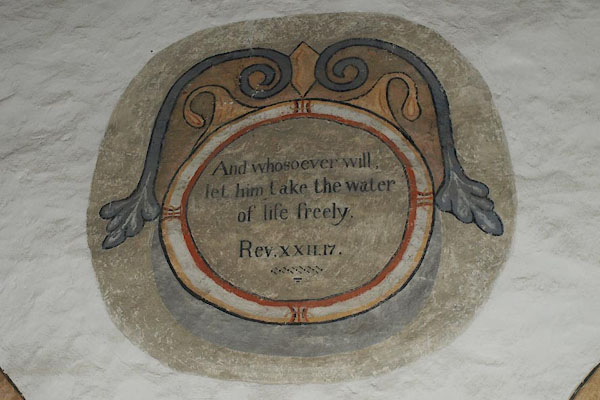 And whosoever will,
let him take the water
of life freely.
Rev. XXII.17.